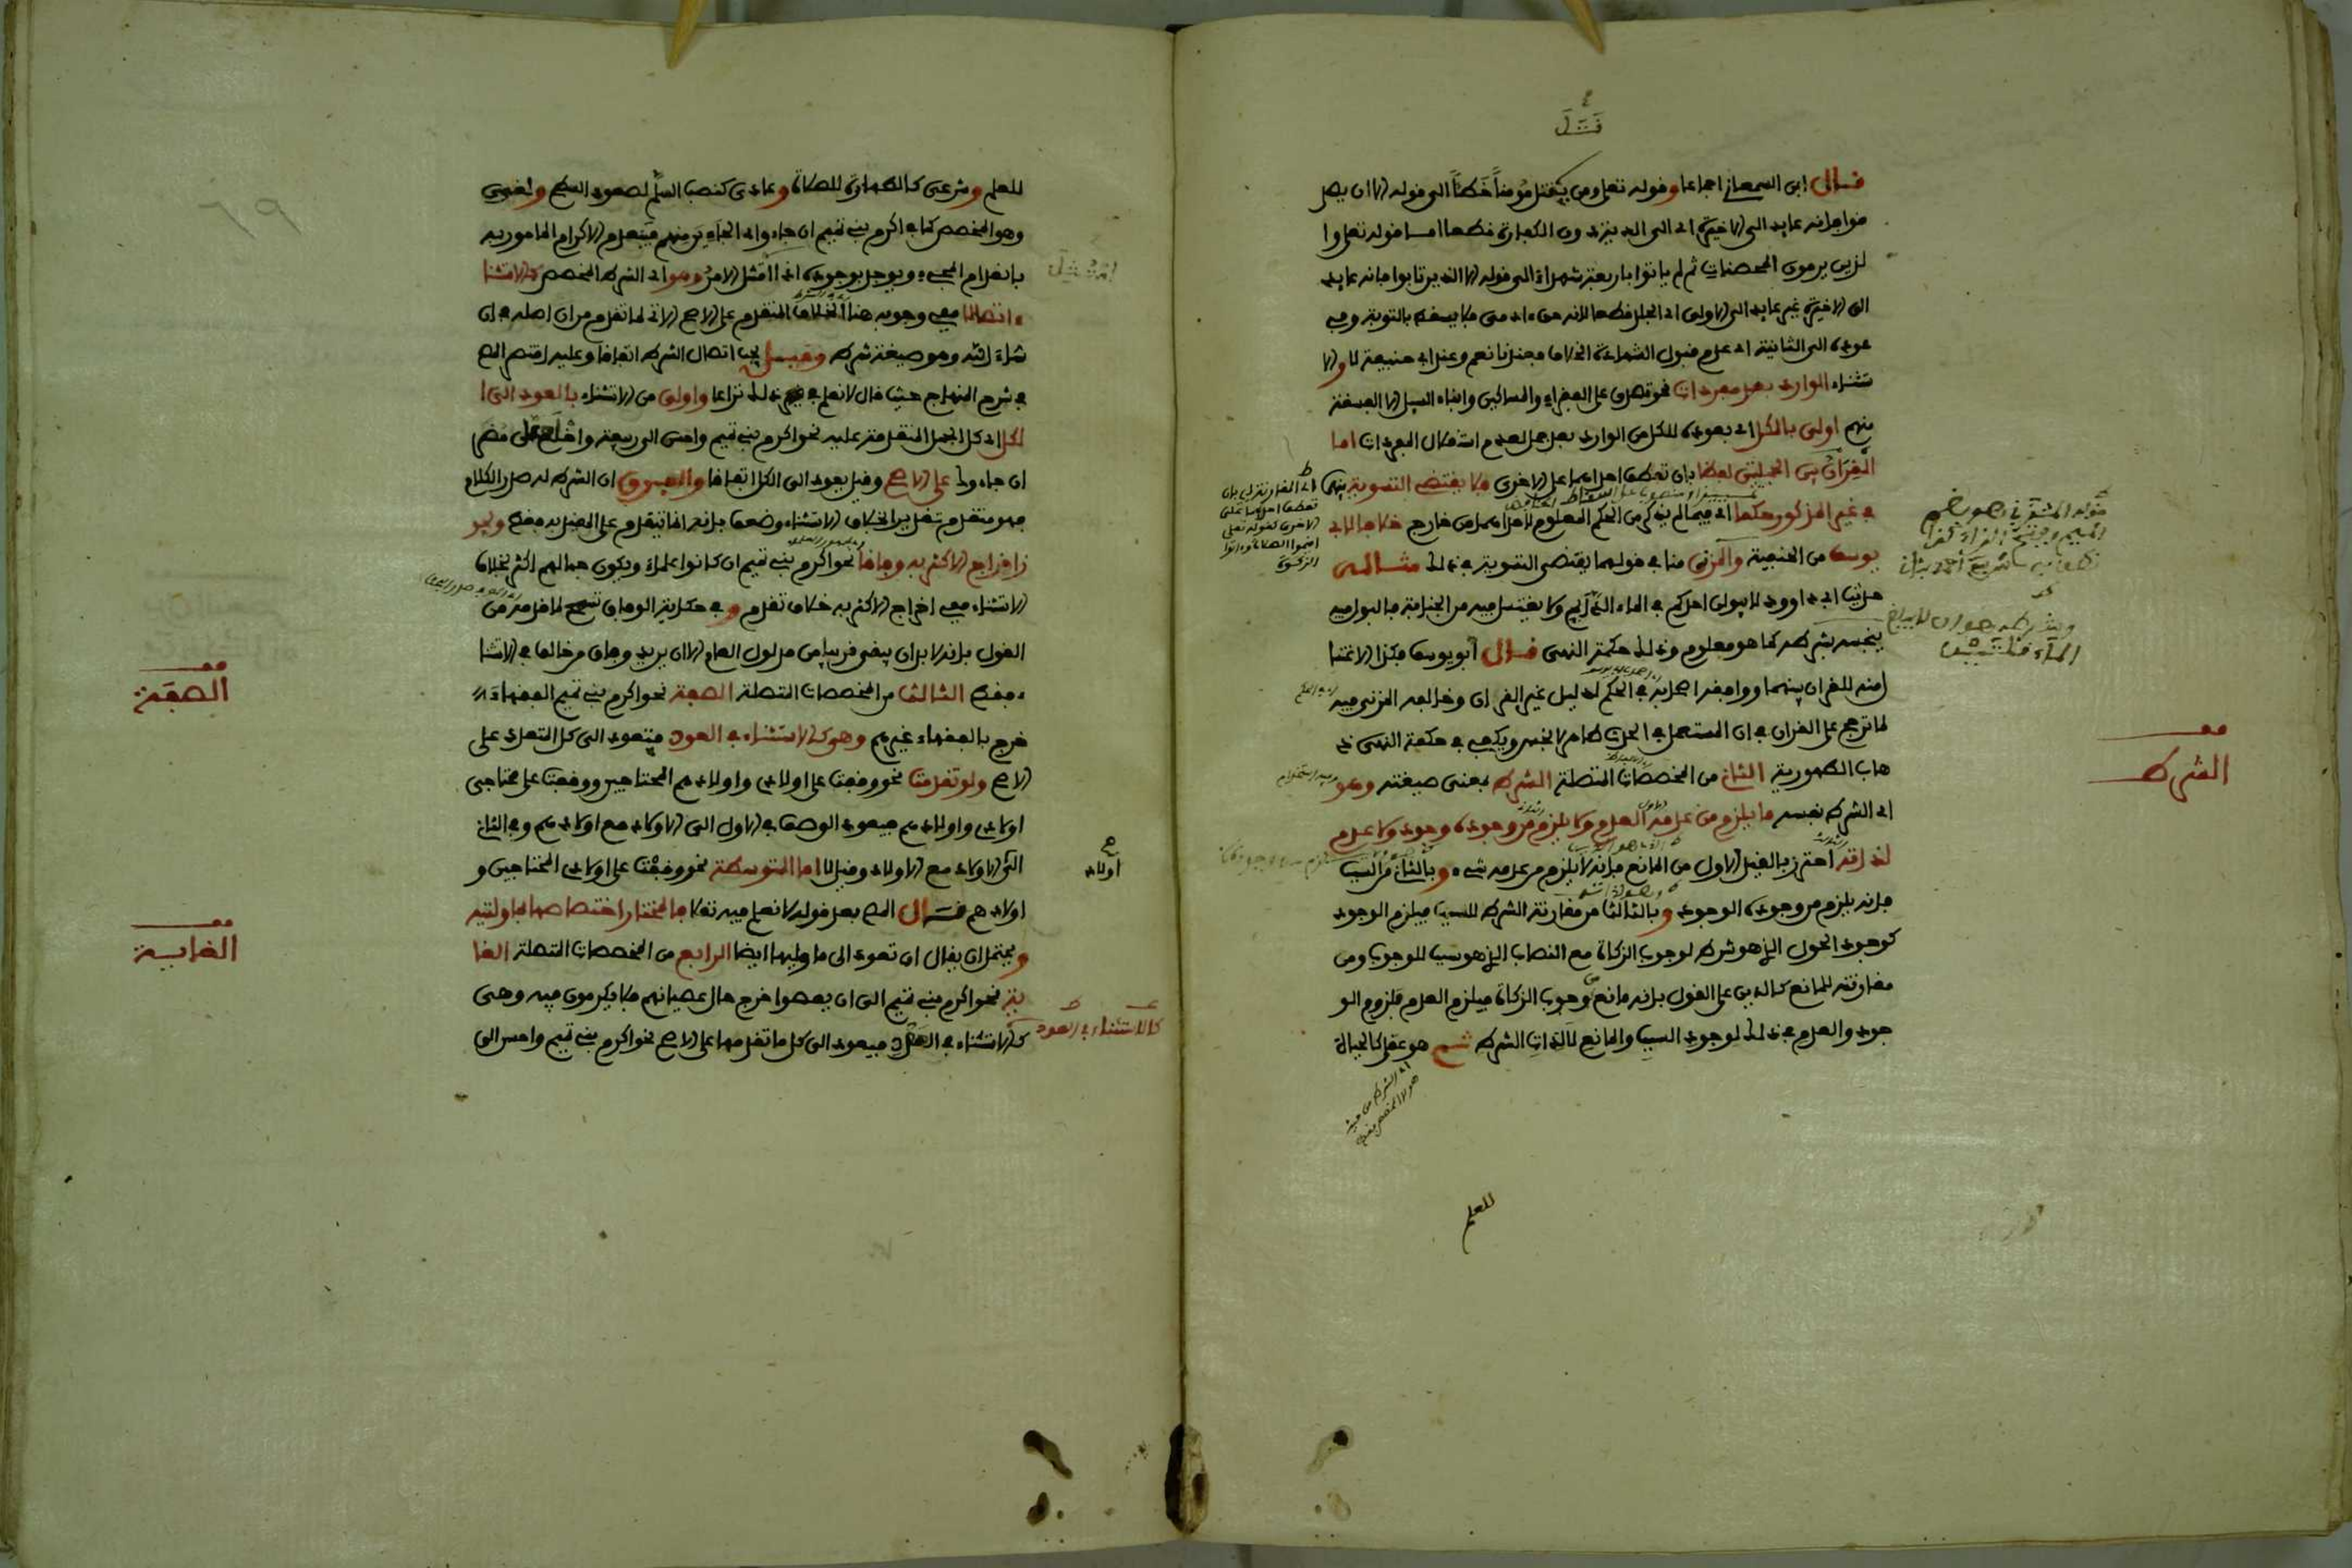 قتل
قال ابن السمعاني اجماعا وقوله تعلى ومن يقتل مومنا خطئا الى قوله الا ان يصد
قوا فانه عايد الى الاخيرة اى الى الدية دون الكفارة قطعا اما قوله تعلى وا
لذين يرمون المحصنات ثم لم ياتوا باربعة شهداء الى قوله الا الذين تابوا فانه عايد
الى الاخيرة غير عايد الى الاولى اى الجلد قطعا لانه حق ءادمى فلا يسقط بالتوبة وفى
عوده الى الثانية اى عدم قبول الشهادة الخلاف فعندنا نعم وعند ابى حنيفة لا والا
ستثناء الوارد بعد مفردات نحو تصدق على الفقراء والمساكين وابناء السبيل الا الفسقة
منهم اولى بالكل اى بعوده للكل من الوارد بعد جمل لعدم استقلال المفردات اما
القران بين الجملتين لفظا بان تعطف احداهما على الاخرى فلا يقتضى التسوية بينهما
فى غير المذكور حكما اى فيما لم يذكر من الحكم المعلوم لاحداهما من خارج خلافا لابى
يوسف من الحنفية والمزنى منا فى قولهما يقتضى التسوية فى ذلك مثاله
حديث ابى داوود لا يبولن احدكم فى الماء الدايم ولا يغتسل فيه من الجنابة فالبول فيه
ينجسه بشرطه كما هو معلوم وذلك حكمة النهى قال ابو يوسف فكذا الاغتسا
ل منه للقران بينهما ووافقه اصحابه فى الحكم لدليل غير القران وخالفه المزنى فيه
لما ترجح على القران فى ان المستعمل فى الحدث طاهر لا نجس ويكفى فى حكمة النهى ذ
هاب الطهورية الثانى من المخصصات المتصلة الشرط بمعنى صيغته وهو
اى الشرط نفسه ما يلزم من عدمه العدم ولا يلزم من وجوده وجود ولا عدم
لذاته احترز بالقيد الاول من المانع فانه لا يلزم من عدمه شىء وبالثانى من السبب
فانه يلزم من وجوده الوجود وبالثالث من مقارنة الشرط للسبب فيلزم الوجود
كوجود الحول الذى هو شرط لوجوب الزكاة مع النصاب الذى هو سبب للوجوب ومن
مقارنته للمانع كالدين على القول بانه مانع من وجوب الزكاة فيلزم العدم فلزوم الو
جود والعدم فى ذلك لوجود السبب والمانع لا لذات الشرط ثم هو عقلى كالحياة
للعلم
الشرط
للعلم وشرعى كالطهارة للصلاة وعادى كنصب السلم لصعود السطح ولغوى
وهو المخصص كما فى اكرم بنى تميم ان جاءوا اى الجاءين منهم فينعدم الاكرام المامور به
بانعدام المجىء ويوجد بوجوده اذا امتثل الامر وهو اى الشرط المخصص كالاستثنا
ء اتصالا ففى وجوبه هنا الخلاف المتقدم على الاصح الاتى لما تقدم من ان اصله فى ان
شاء الله وهو صيغة شرط وقيل يجب اتصال الشرط اتفاقا وعليه اقتصر المص
فى شرح المنهاج حيث قال لا نعلم فى ذلك نزاعا واولى من الاستثناء بالعود الى ا
لكل اى كل الجمل المتقدمة عليه نحو اكرم بنى تميم واحسن الى ربيعة واخلع على مضر
ان جاءوك على الاصح وقيل يعود الى الكل اتفاقا والفرق ان الشرط له صدر الكلام
فهو متقدم تقديرا بخلاف الاستثناء وضعف بانه انما يتقدم على المقيد به فقط ويجو
ز اخراج الاكثر به وفاقا نحو اكرم بنى تميم ان كانوا علماء ويكون جهالهم اكثر بخلاف
الاستثناء ففى اخراج الاكثر به خلاف تقدم وفى حكاية الوفاق تسمح لما قدمه من
القول بانه لا بد ان يبقى قريب من مدلول العام الا ان يريد وفاق من خالف فى الاستثنا
ء فقط الثالث من المخصصات المتصلة الصفة نحو اكرم بنى تميم الفقهاء
خرج بالفقهاء غيرهم وهو كالاستثناء فى العود فتعود الى كل المتعدد على
الاصح ولو تقدمت نحو وقفت على اولادى واولادهم المحتاجين ووقفت على محتاجى
اولادى واولادهم فيعود الوصف فى الاول الى الاولاد مع اولادهم وفى الثانى
الى الاولاد مع الاولاد وقيل لا اما المتوسطة نحو وقفت على اولادى المحتاجين و
اولادهم قال المص بعد قوله لا نعلم فيه نقلا فالمختار اختصاصها بما وليته
ويحتمل ان يقال ان تعود الى ما وليها ايضا الرابع من المخصصات المتصلة الغا
ية نحو اكرم بنى تميم الى ان يعصوا خرج حال عصيانهم فلا يكرمون فيه وهى
كالاستثناء فى العود فيعود الى كل ما تقدمها على الاصح نحو اكرم بنى تميم واحسن الى
الصفة
الغاية
اولاد
كالاستثناء فى العود
٦٩